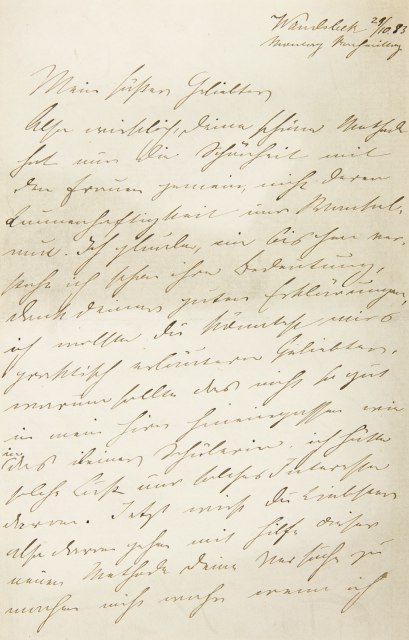 Wandsbek 29/10.83
Montag Nachmittag
Mein süßer Geliebter
Also wirklich, deine schöne Methode
hat nur die Schönheit mit
den Frauen gemein, nicht deren
Launenhaftigkeit und Wankel-
mut. Ich glaube, ein bischen ver-
stehe ich schon ihre Bedeutung,
dank deiner guten Erklärungen,
ich wollte du könntest mirs
praktisch erläutern Geliebter,
warum sollte das nicht so gut
in mein Hirn hineinpassen wie
in das deiner Schülerin, ich hätte
solche Lust und solches Interesse
daran. Jetzt wirst du Liebster
also daran gehen mit Hilfe dieser
neuen Methode deine Versuche zu
machen nicht wahr wenn ich